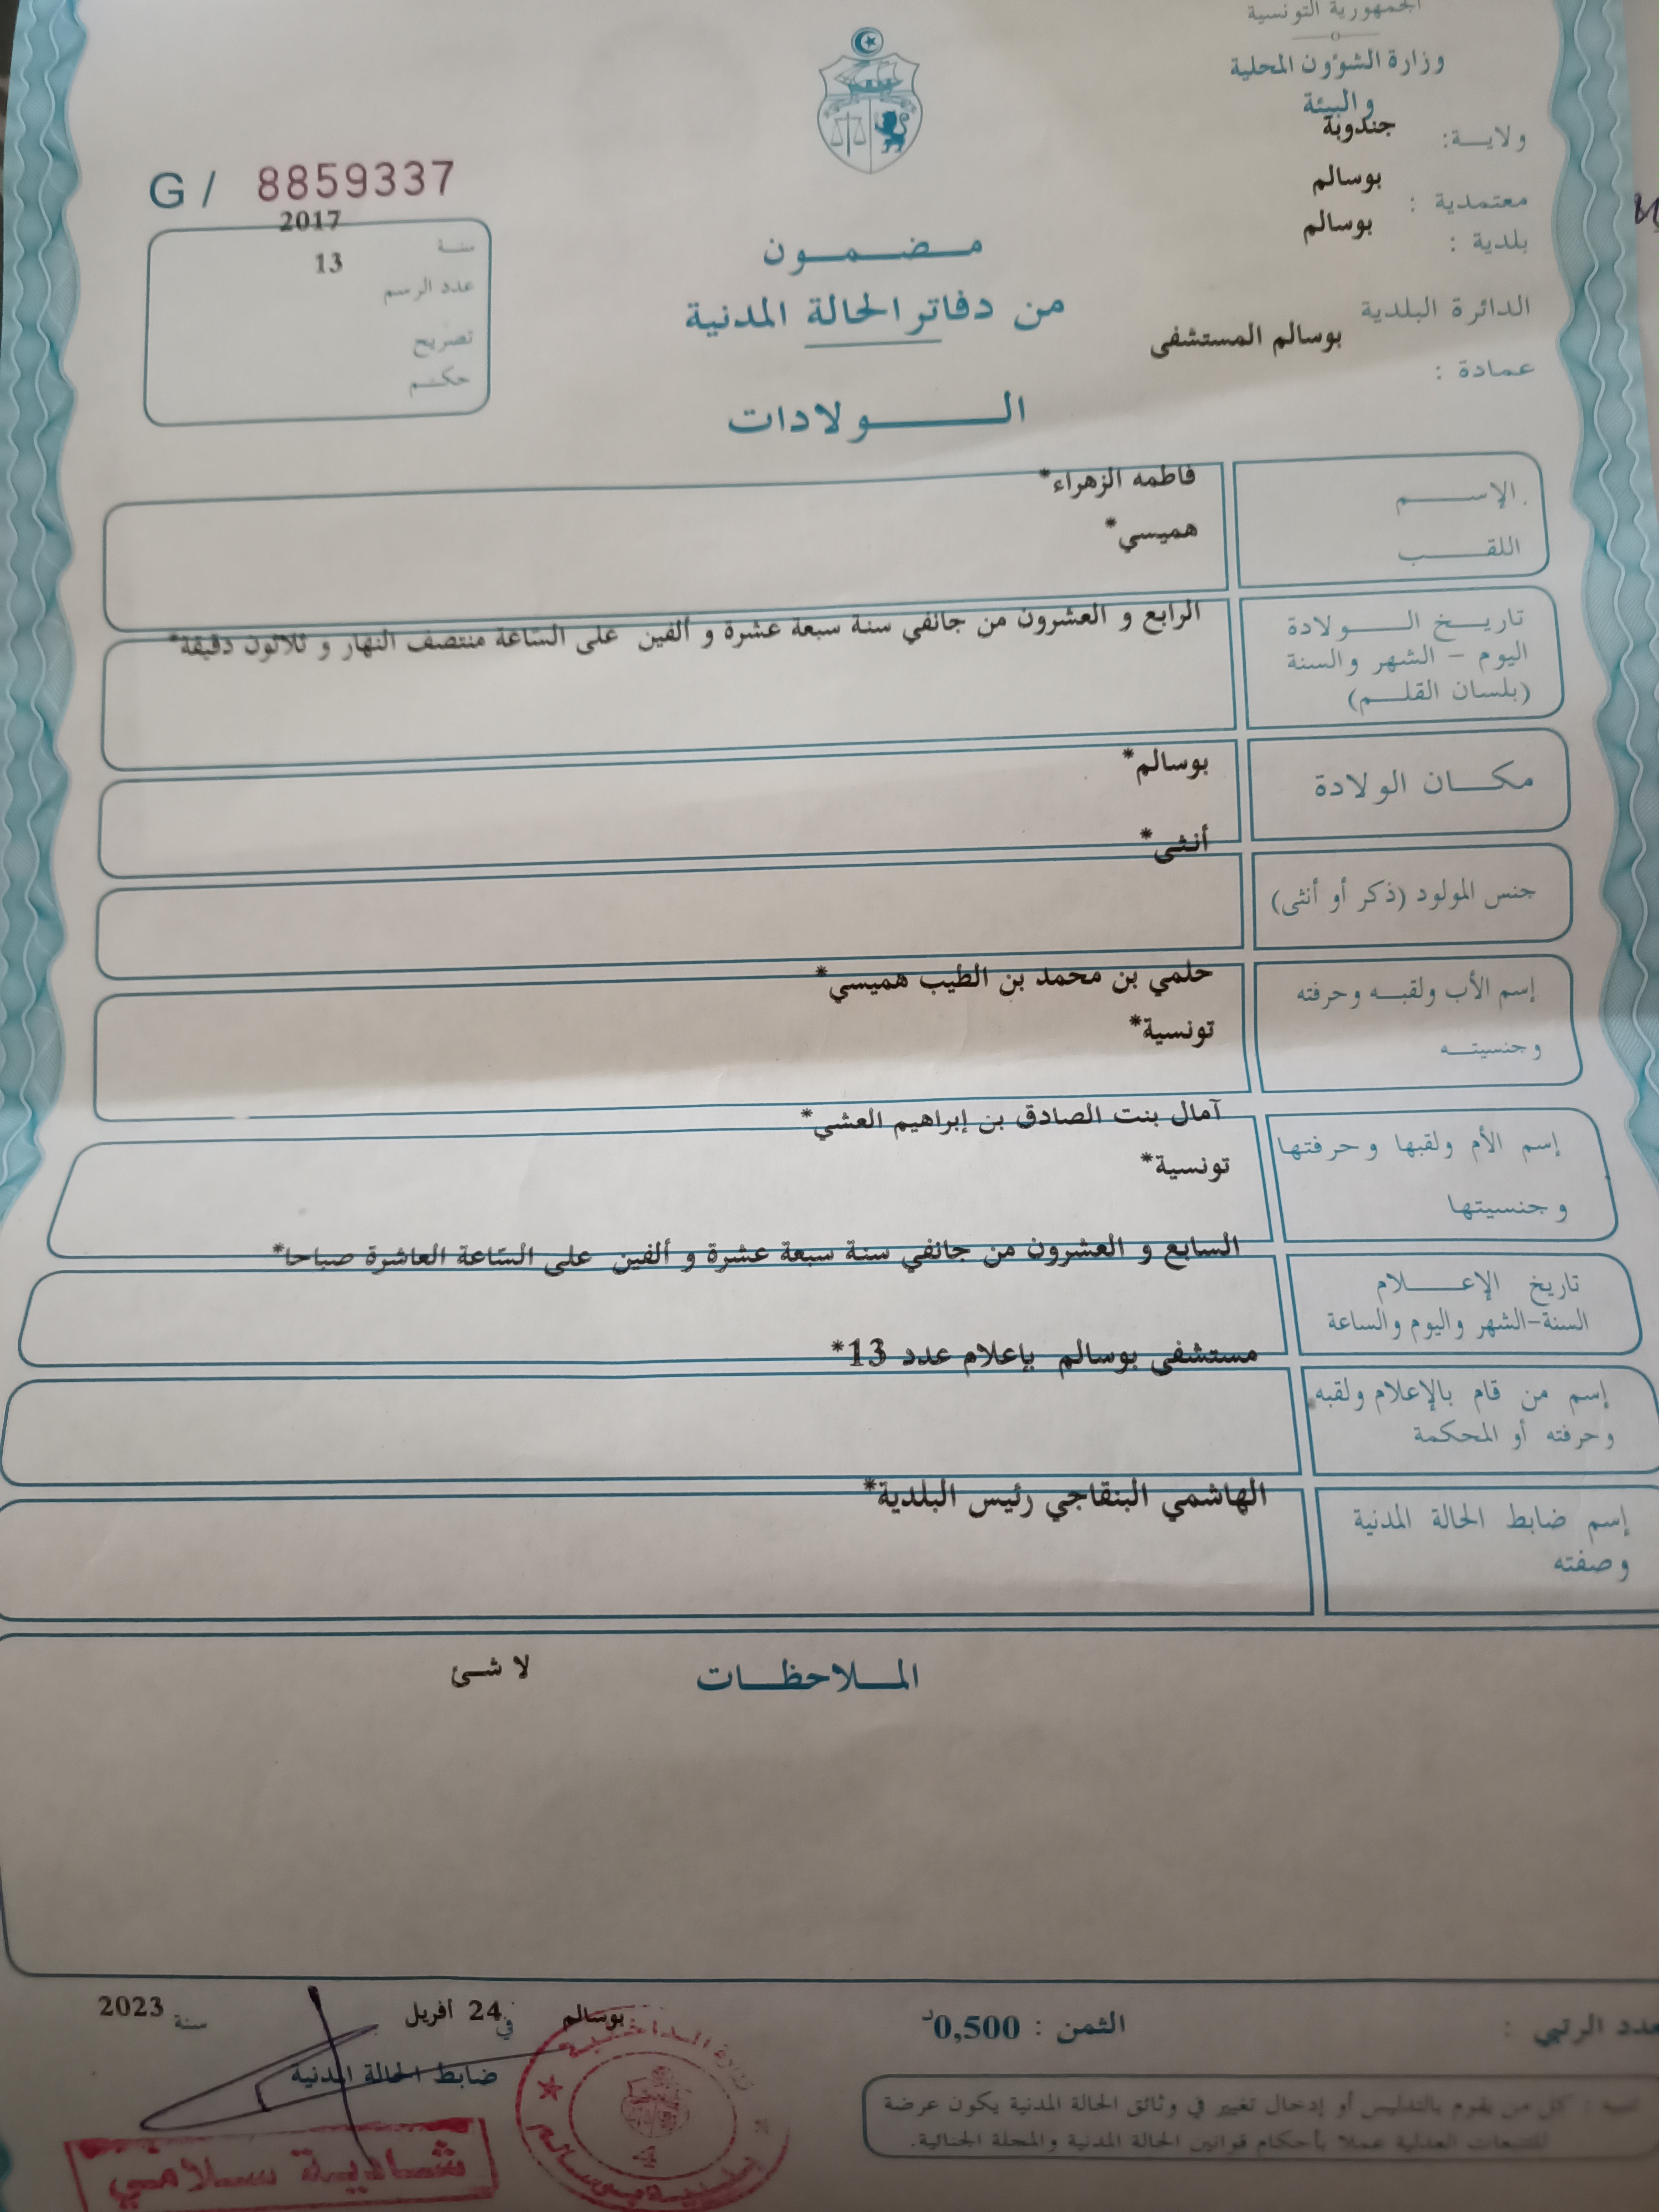 الجمهورية التونسية
وزارة الشؤون المحلية
والبيئة
ولايـــة: جندوبة
معتمدية : بوسالم
بلدية : بوسالم
الدائرة البلدية
بوسالم المستشفى
عمادة :
G / 8859337
سنـة 2017
عدد الرسم 13
تصريح
حكـم
مـضـمـون
من دفاتر الحالة المدنية
الـولادات
الإسـم فاطمه الزهراء*
اللقـب هميسي*
تاريـخ الـولادة
اليوم – الشهر والسنة
(بلسان القلـم)
الرابع و العشرون من جانفي سنة سبعة عشرة و ألفين على السّاعة منتصف النهار و ثلاثون دقيقة*
مكـان الولادة بوسالم*
جنس المولود (ذكر أو أنثى) أنثى*
إسم الأب ولقبـه وحرفته
وجنسيتـه
حلمي بن محمد بن الطيب هميسي*
تونسية*
إسم الأم ولقبها وحرفتها
وجنسيتها
آمال بنت الصادق بن إبراهيم العشي*
تونسية*
تاريخ الإعـلام
السنة-الشهر واليوم والساعة
السابع و العشرون من جانفي سنة سبعة عشرة و ألفين على السّاعة العاشرة صباحا*
إسم من قام بالإعلام ولقبه
وحرفته أو المحكمة
مستشفى بوسالم بإعلام عدد 13*
إسم ضابط الحالة المدنية
وصفته
الهاشمي البنقاجي رئيس البلدية*
المـلاحظـات لا شئ
عدد الرتبي :
الثمن : 0,500د
بوسالم في 24 أفريل سنة 2023
ضابط الحالة المدنية
تنبيه : كل من يقوم بالتدليس أو إدخال تغيير في وثائق الحالة المدنية يكون عرضة
للتتبعات العدلية عملا بأحكام قوانين الحالة المدنية والمجلة الجنائية.
وزارة الداخلية
بلدية بوسالم
شاديـة سـلامي